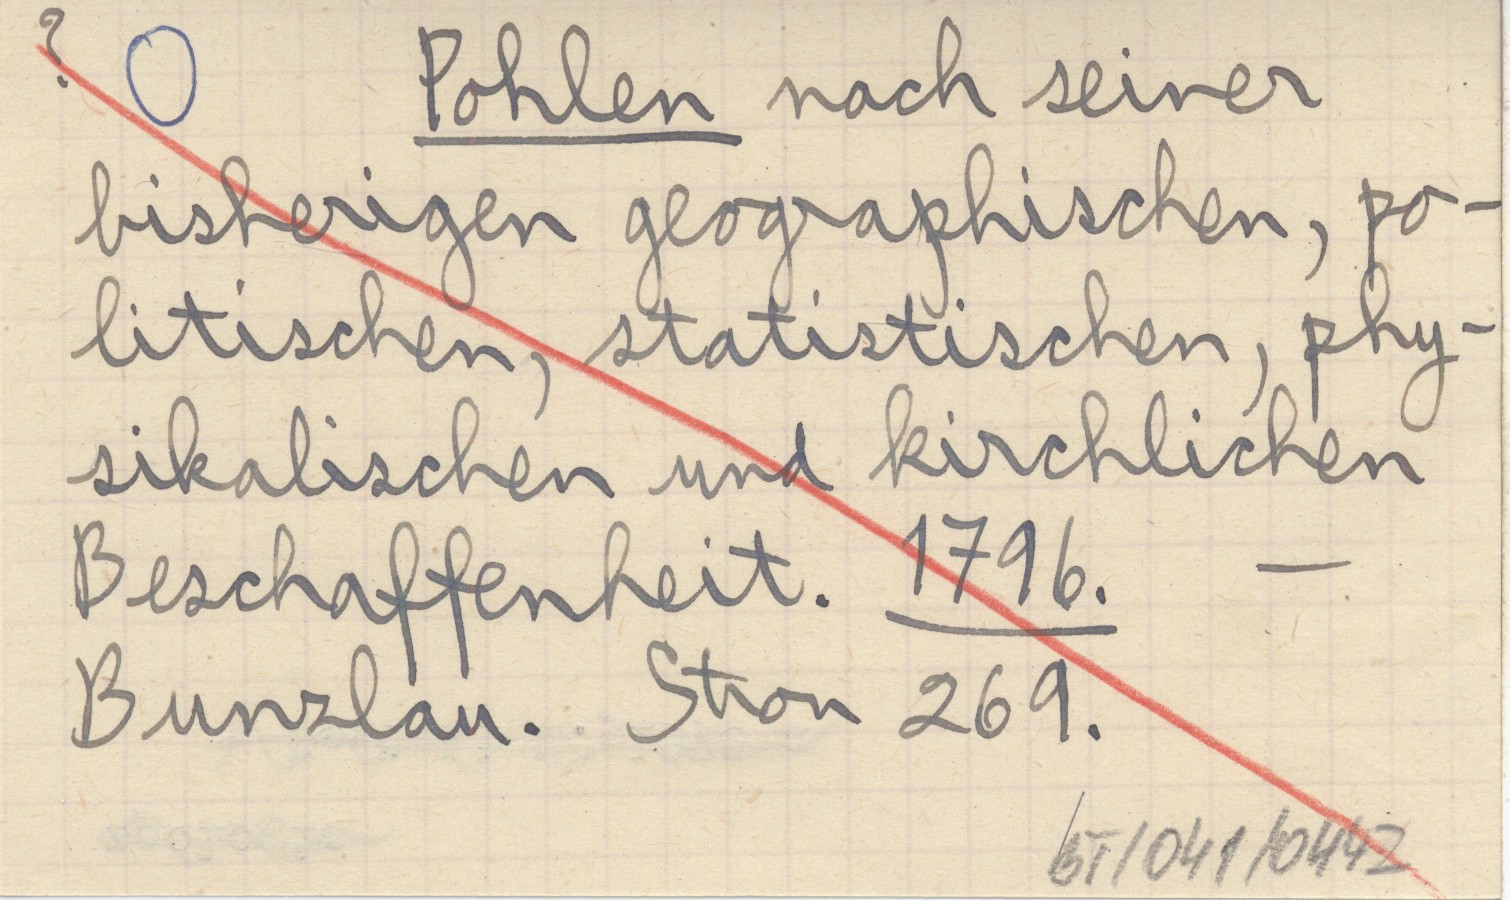 ? O Pohlen nach seiner
bisherigen geographischen, po-
litischen, statistischen, phy-
sikalischen und kirchlichen
Beschaffenheit. 1796. —
Bunzlau. Stron 269.
BT/041/0442